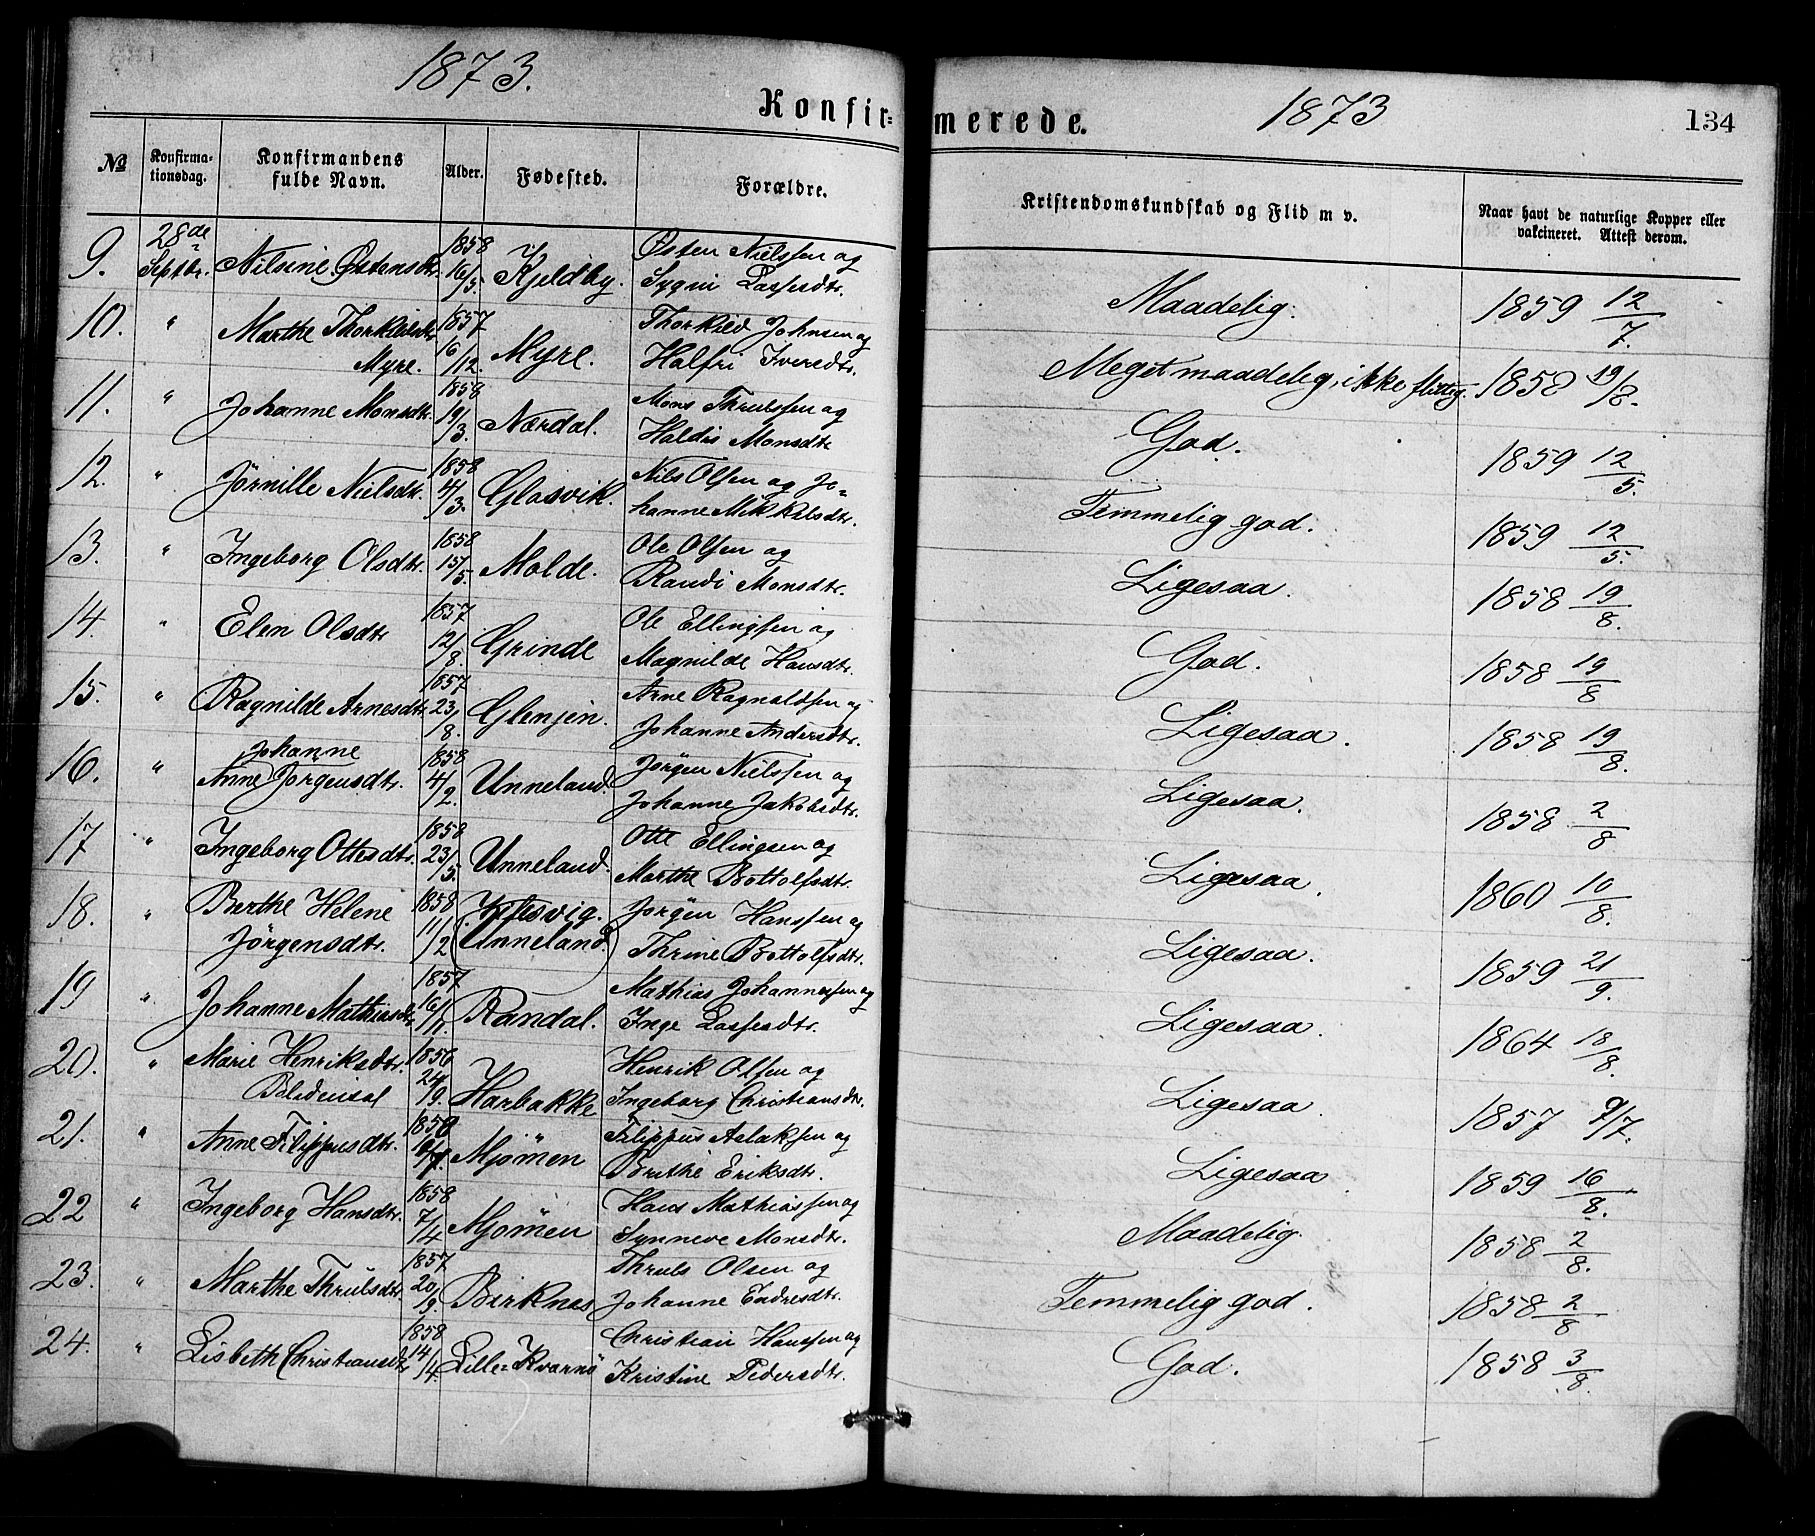 1873.
Konfir=
No
Konfirma-
tionsdag.
Konfirmandens
fulde Navn.
Alder.
Fødested.
Forældre.
9.
28de
Septbr.
Nilsine Østensdtr.
1858
16/5
Kjeldby.
Østen Nielssen og
Sygni Lassesdtr.
10.
"
Marthe Thorkildsdtr
Myre.
1857
16/12.
Myre.
Thorkild Johnsen og
Halfri Iversdtr.
11.
"
Johanne Monsdtr.
1858
19/3.
Nærdal.
Mons Thrulssen og
Haldis Monsdtr
12.
"
Jørnille Nielsdtr.
1858
4/3.
Glosvik.
Nils Olsen og Jo=
hanne Mikkelsdtr.
13.
"
Ingeborg Olsdtr.
1858
15/5
Molde.
Ole Olsen og
Randi Monsdtr.
14.
"
Elen Olsdtr
1857
12/8.
Grinde
Ole Ellingsen og
Magnilde Hansdtr.
15.
"
Ragnilde Arnesdtr.
1857
23/8.
Glenjen.
Arne Ragnaldsen og
Johanne Andersdtr.
16.
"
Johanne
Anne Jørgensdtr.
1858
4/2.
Unneland.
Jørgen Nielssen og
Johanne Jakobsdtr.
17
"
Ingeborg Ottesdtr.
1858
23/5.
Unneland.
Otte Ellingsen og
Marthe Bottolfsdtr.
18.
"
Berthe Helene
Jørgensdtr.
1858
11/2
(Unneland)
Jørgen Hanssen og
Thrine Bottolfsdtr.
19
"
Johanne Mathiasdtr
1857
16/11.
Randal.
Mathias Johannessen og
Inge Lassesdtr.
20.
"
Marie Henriksdtr.
1856
24/9.
Harbakke
Henrik Olsen og
Ingeborg Christiansdtr.
21.
"
Anne Filippusdtr.
1858
Mjömen
Filippus Aslaksen og
Brithe Eriksdtr.
22
"
Ingeborg Hansdtr.
1858
7/4
Mjömen
Hans Mathiassen og
Synneve Monsdtr.
23.
"
Marthe Thrulsdtr.
1857
20/9.
Birknæs
Thruls Olsen og
Johanne Endresdtr.
24.
"
Lisbeth Christiansdtr
1858
14/4.
Lille=Kvarnø
Christian Hanssen og
Kristine Pedersdtr.
merede.
1873
134
Kristendomskundskab og Flid m v.
Naar havt de naturlige Kopper eller
vakcineret. Attest derom.
Maadelig.
1859 12/7.
Meget maadelig, ikke flittig.
1858 19/8.
God.
1859 12/5.
Temmelig god.
1859 12/5.
Ligesaa.
1858 19/8.
God.
1858 19/8
Ligesaa.
1858 19/8.
Ligesaa.
1858 2/8
Ligesaa.
1860 10/8.
Ligesaa.
1859 21/9.
Ligesaa.
1864 18/8.
Ligesaa.
1857 9/7.
Ligesaa.
1859 16/8.
Maadelig.
1858 2/8.
Temmelig god.
1858 2/8
God.
1858 3/8.